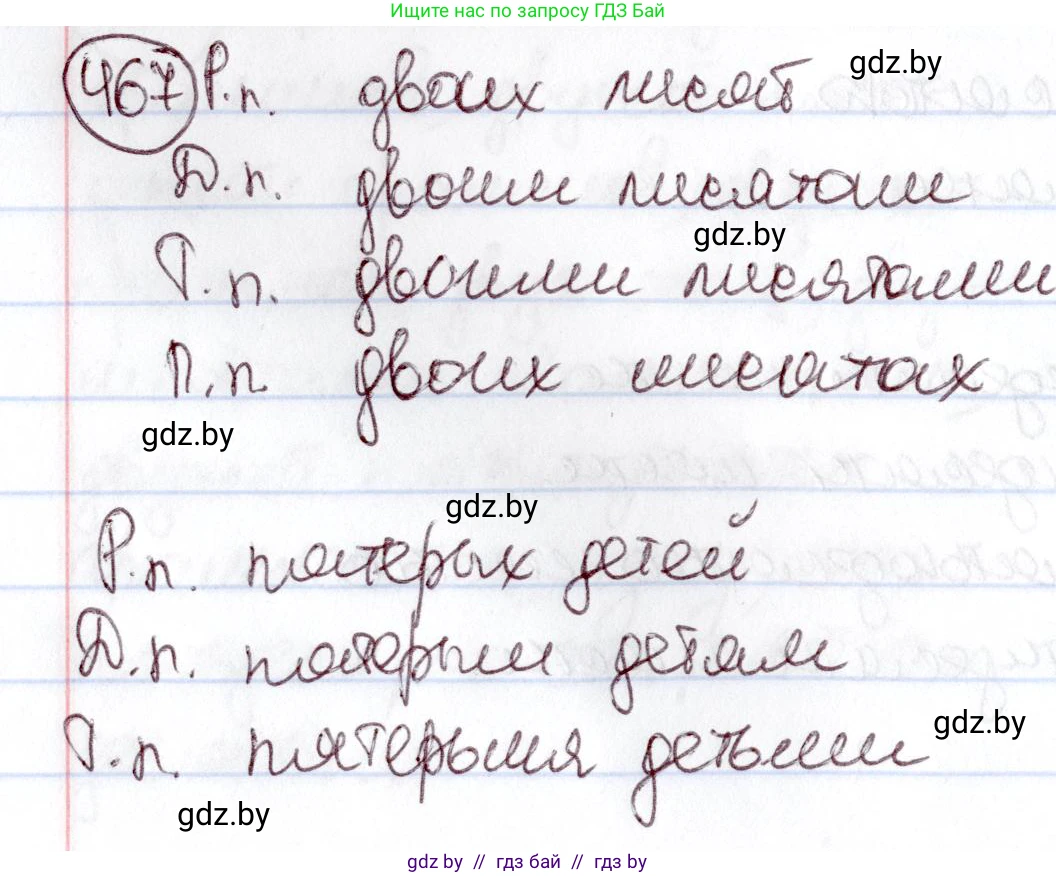 Ищите нас по запросу ГДЗ Бай
467 Р.п. двоих лисят gdz.by
Д.п. двоим лисятам
gdz.by
Т.п. двоими лисятами
П.п. двоих лисятах
gdz.by
gdz.by
Р.п. пятерых детей
Д.п. пятерым детям
Т.п. пятерымя детьми
gdz.by
gdz.by
gdz by // гдз бай // гдз by